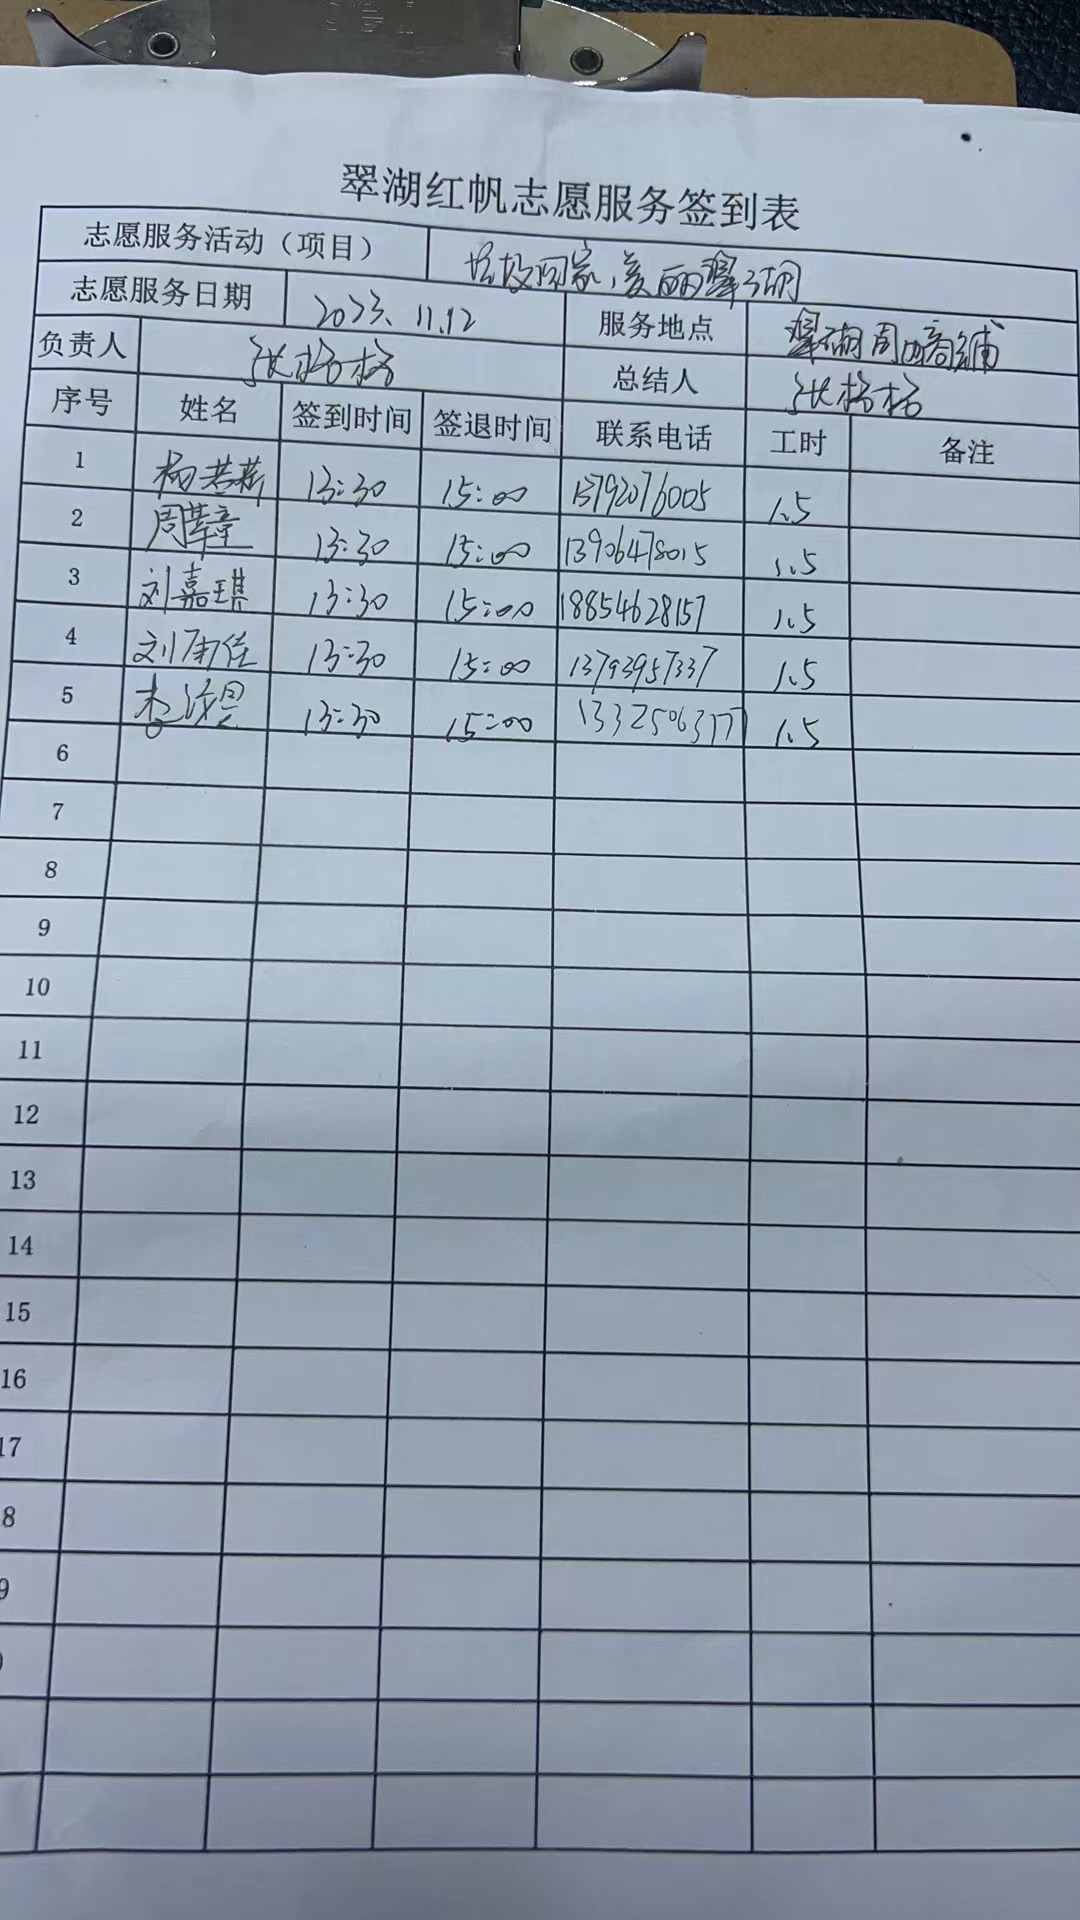 翠湖红帆志愿服务签到表
志愿服务活动（项目） 垃圾回家，美丽翠湖
志愿服务日期 2023.11.12 服务地点 翠湖周边商铺
负责人 张格格 总结人 张格格
序号 姓名 签到时间 签退时间 联系电话 工时 备注
1 13:30 15:00 13792076005 1.5
2 13:30 15:00 13906478015 1.5
3 刘嘉琪 13:30 15:00 18854628157 1.5
4 13:30 15:00 13793957337 1.5
5 13:30 15:00 1.5
6
7
8
9
10
11
12
13
14
15
16
17
8
9